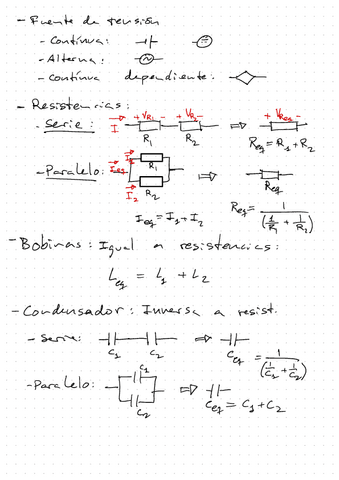 - Fuente de tensión
- Continua:
- Alterna:
- continua dependiente:
- Resistencias:
- Serie: I + VR1 - + VR2 - ⇒ + VReq -
R1 R2 Req = R1 + R2
- Paralelo: Ieq I1 R1 ⇒
I2 R2 Req
Ieq = I1 + I2 Req = 1 / (1/R1 + 1/R1)
- Bobinas: Igual a resistencias:
Leq = L1 + L2
- Condensador: Inversa a resist.
- Serie: ⇒
C1 C2 Ceq = 1 / (1/C1 + 1/C2)
- Paralelo: C1 ⇒
C2 Ceq = C1 + C2